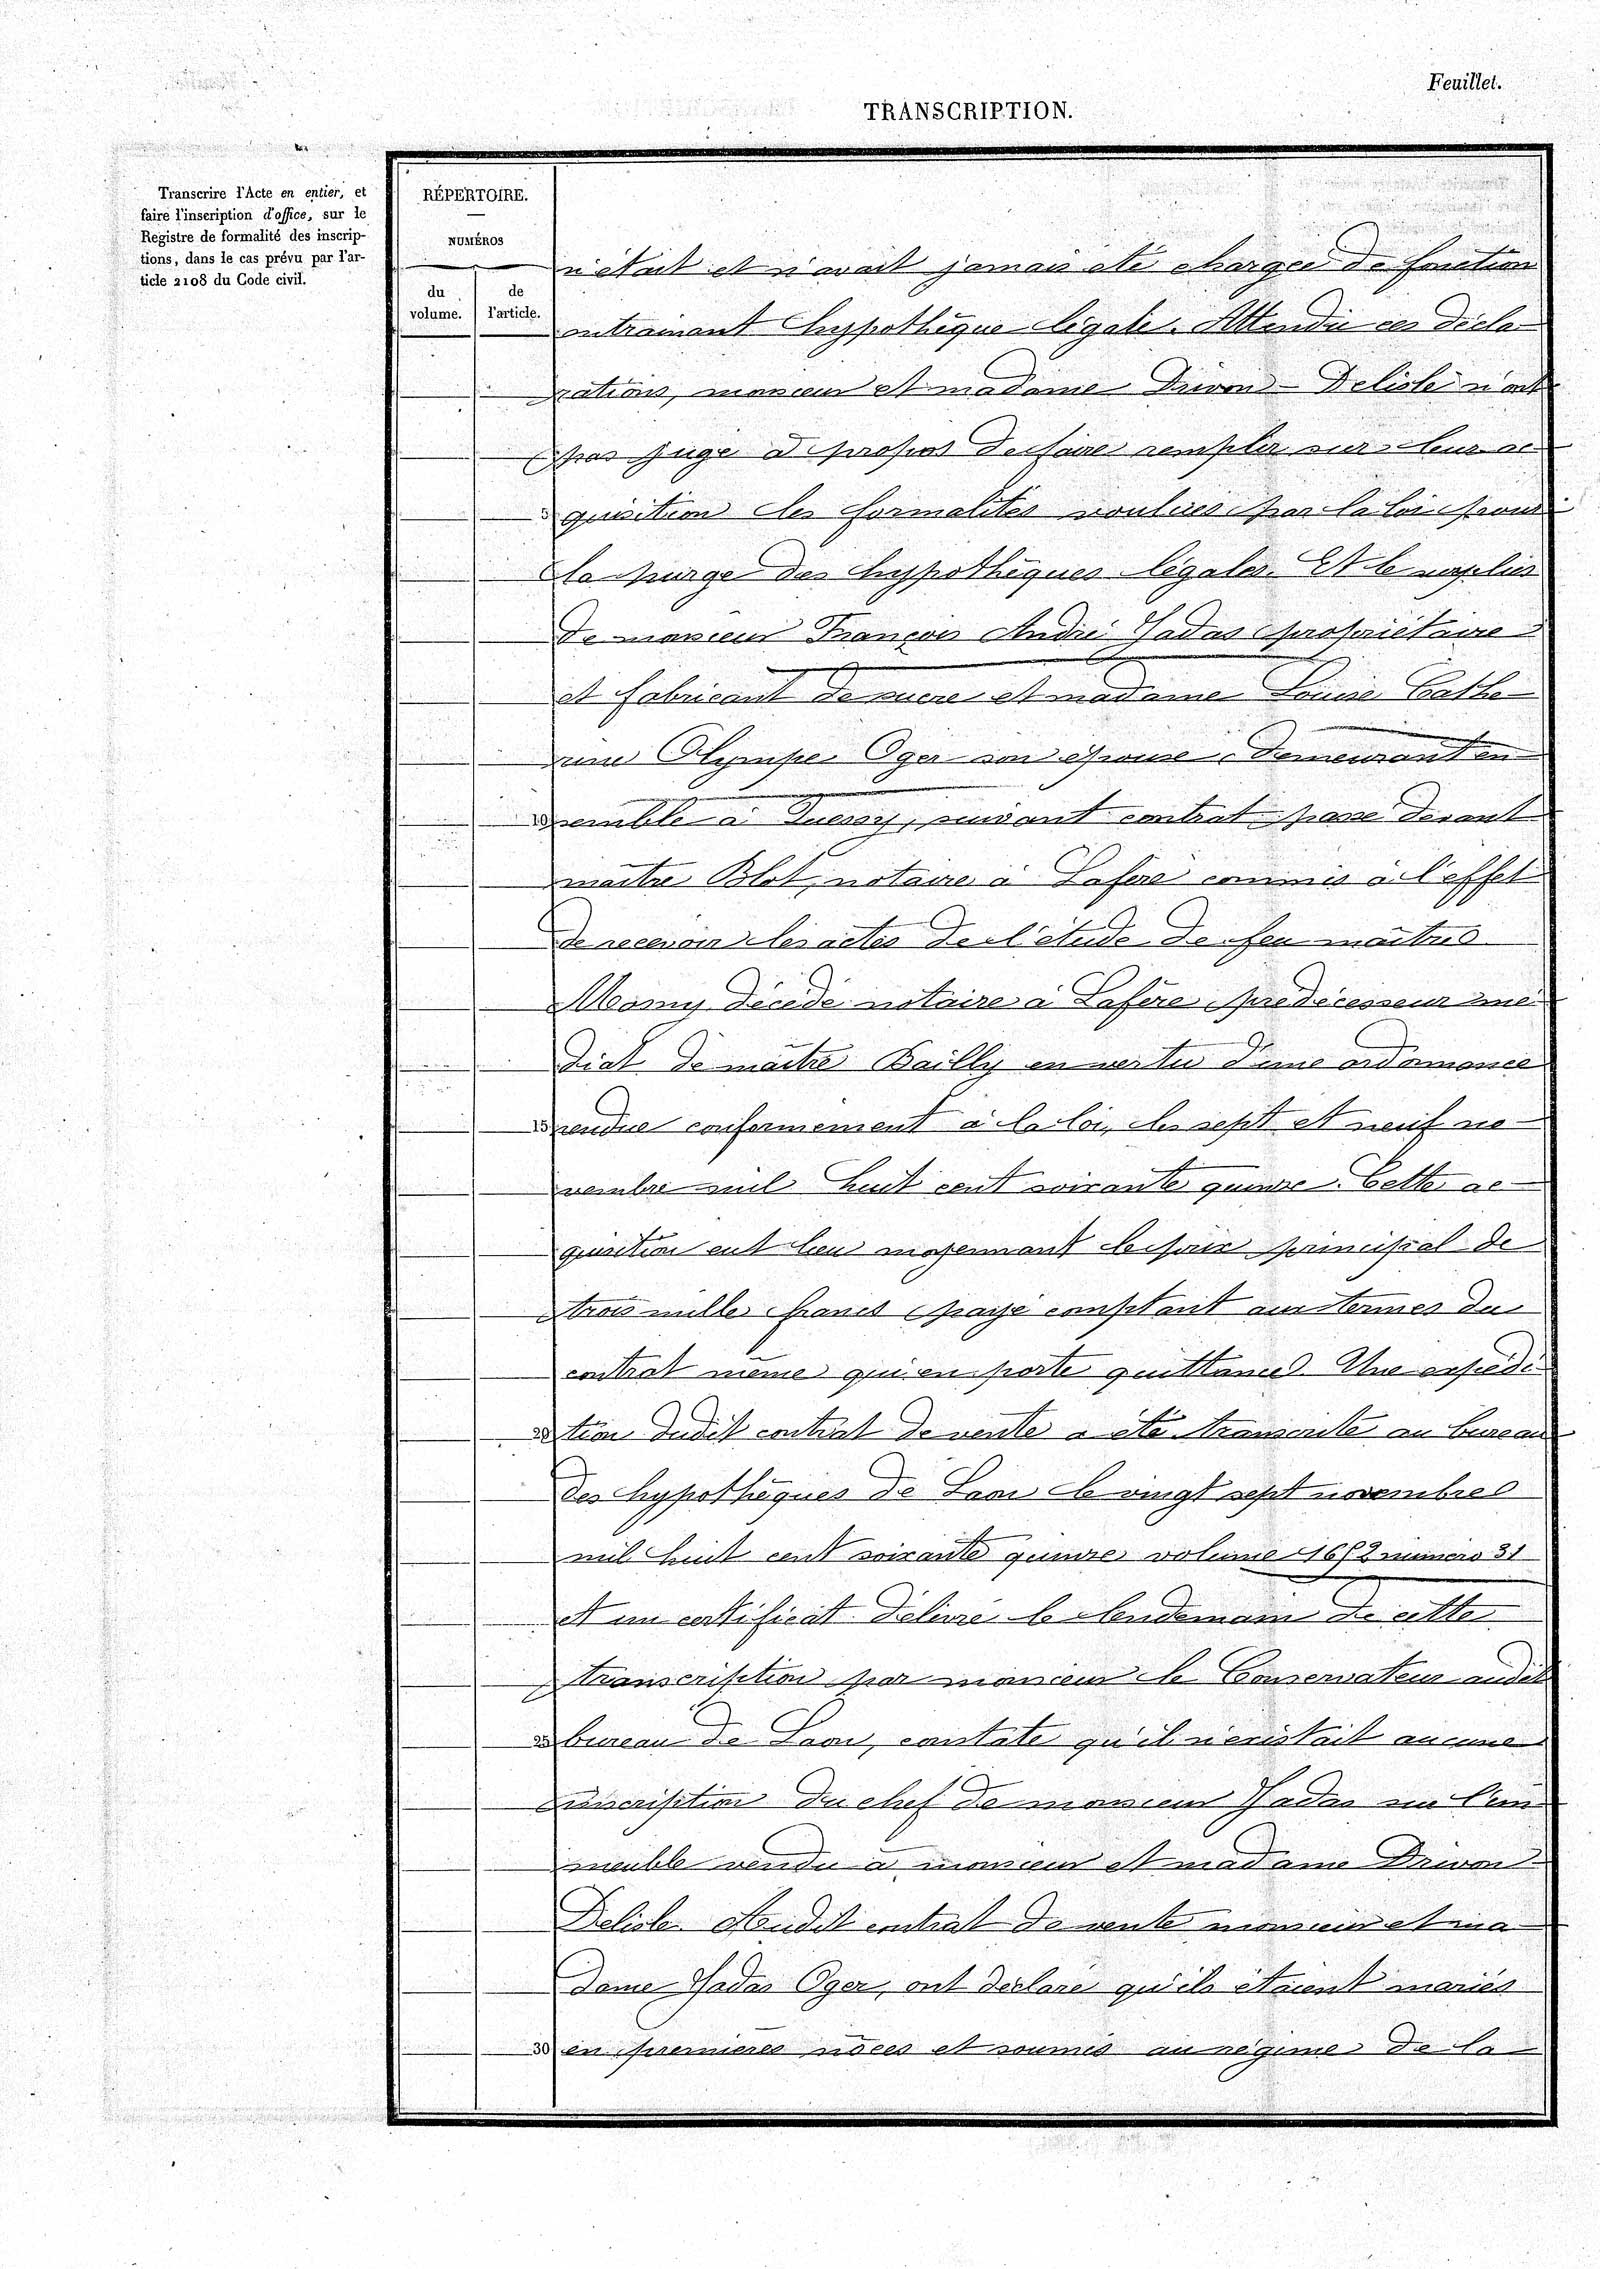 Feuillet.
TRANSCRIPTION.
Transcrire l'Acte en entier, et
faire l'inscription d'office, sur le
Registre de formalité des inscrip-
tions, dans le cas prévu par l'ar-
ticle 2108 du Code civil.
RÉPERTOIRE.
NUMÉROS
du
volume.
de
l'article.
n'était et n'avait jamais été chargée de fonction
entrainant hypothèque légale. Attendu ces décla-
rations, monsieur et madame Drivon-Delisle n'ont
pas jugé à propos de faire remplir sur leur ac-
quisition les formalités voulues par la loi pour
la purge des hypothèques légales. Et le surplus
de monsieur François André Hadas propriétaire
et fabricant de sucre et madame Louise Cathe-
rine Olympe Oger son épouse, demeurant en-
10 semble à Quessy, suivant contrat passé devant
maître Blot, notaire à Lafère commis à l'effet
de recevoir les actes de l'étude de feu maître
décédé notaire à Lafère, prédécesseur mé-
diat de maître Bailly en vertu d'une ordonnance
15 rendue conformément à la loi, les sept et neuf no-
vembre mil huit cent soixante quinze. Cette ac-
quisition eut lieu moyennant le prix principal de
trois mille francs payé comptant aux termes du
contrat même qui en porte quittance. Une expédi-
20 tion dudit contrat de vente a été transcrite au bureau
des hypothèques de Laon le vingt sept novembre
mil huit cent soixante quinze volume numéro 31
et un certificat délivré le lendemain de cette
transcription par monsieur le Conservateur audit
25 bureau de Laon, constate qu'il n'existait aucune
inscription du chef de monsieur Hadas sur l'im-
meuble vendu à monsieur et madame Drivon-
Delisle. Audit contrat de vente monsieur et ma-
dame Hadas Oger, ont déclaré qu'ils étaient mariés
30 en premières nôces et soumis au régime de la